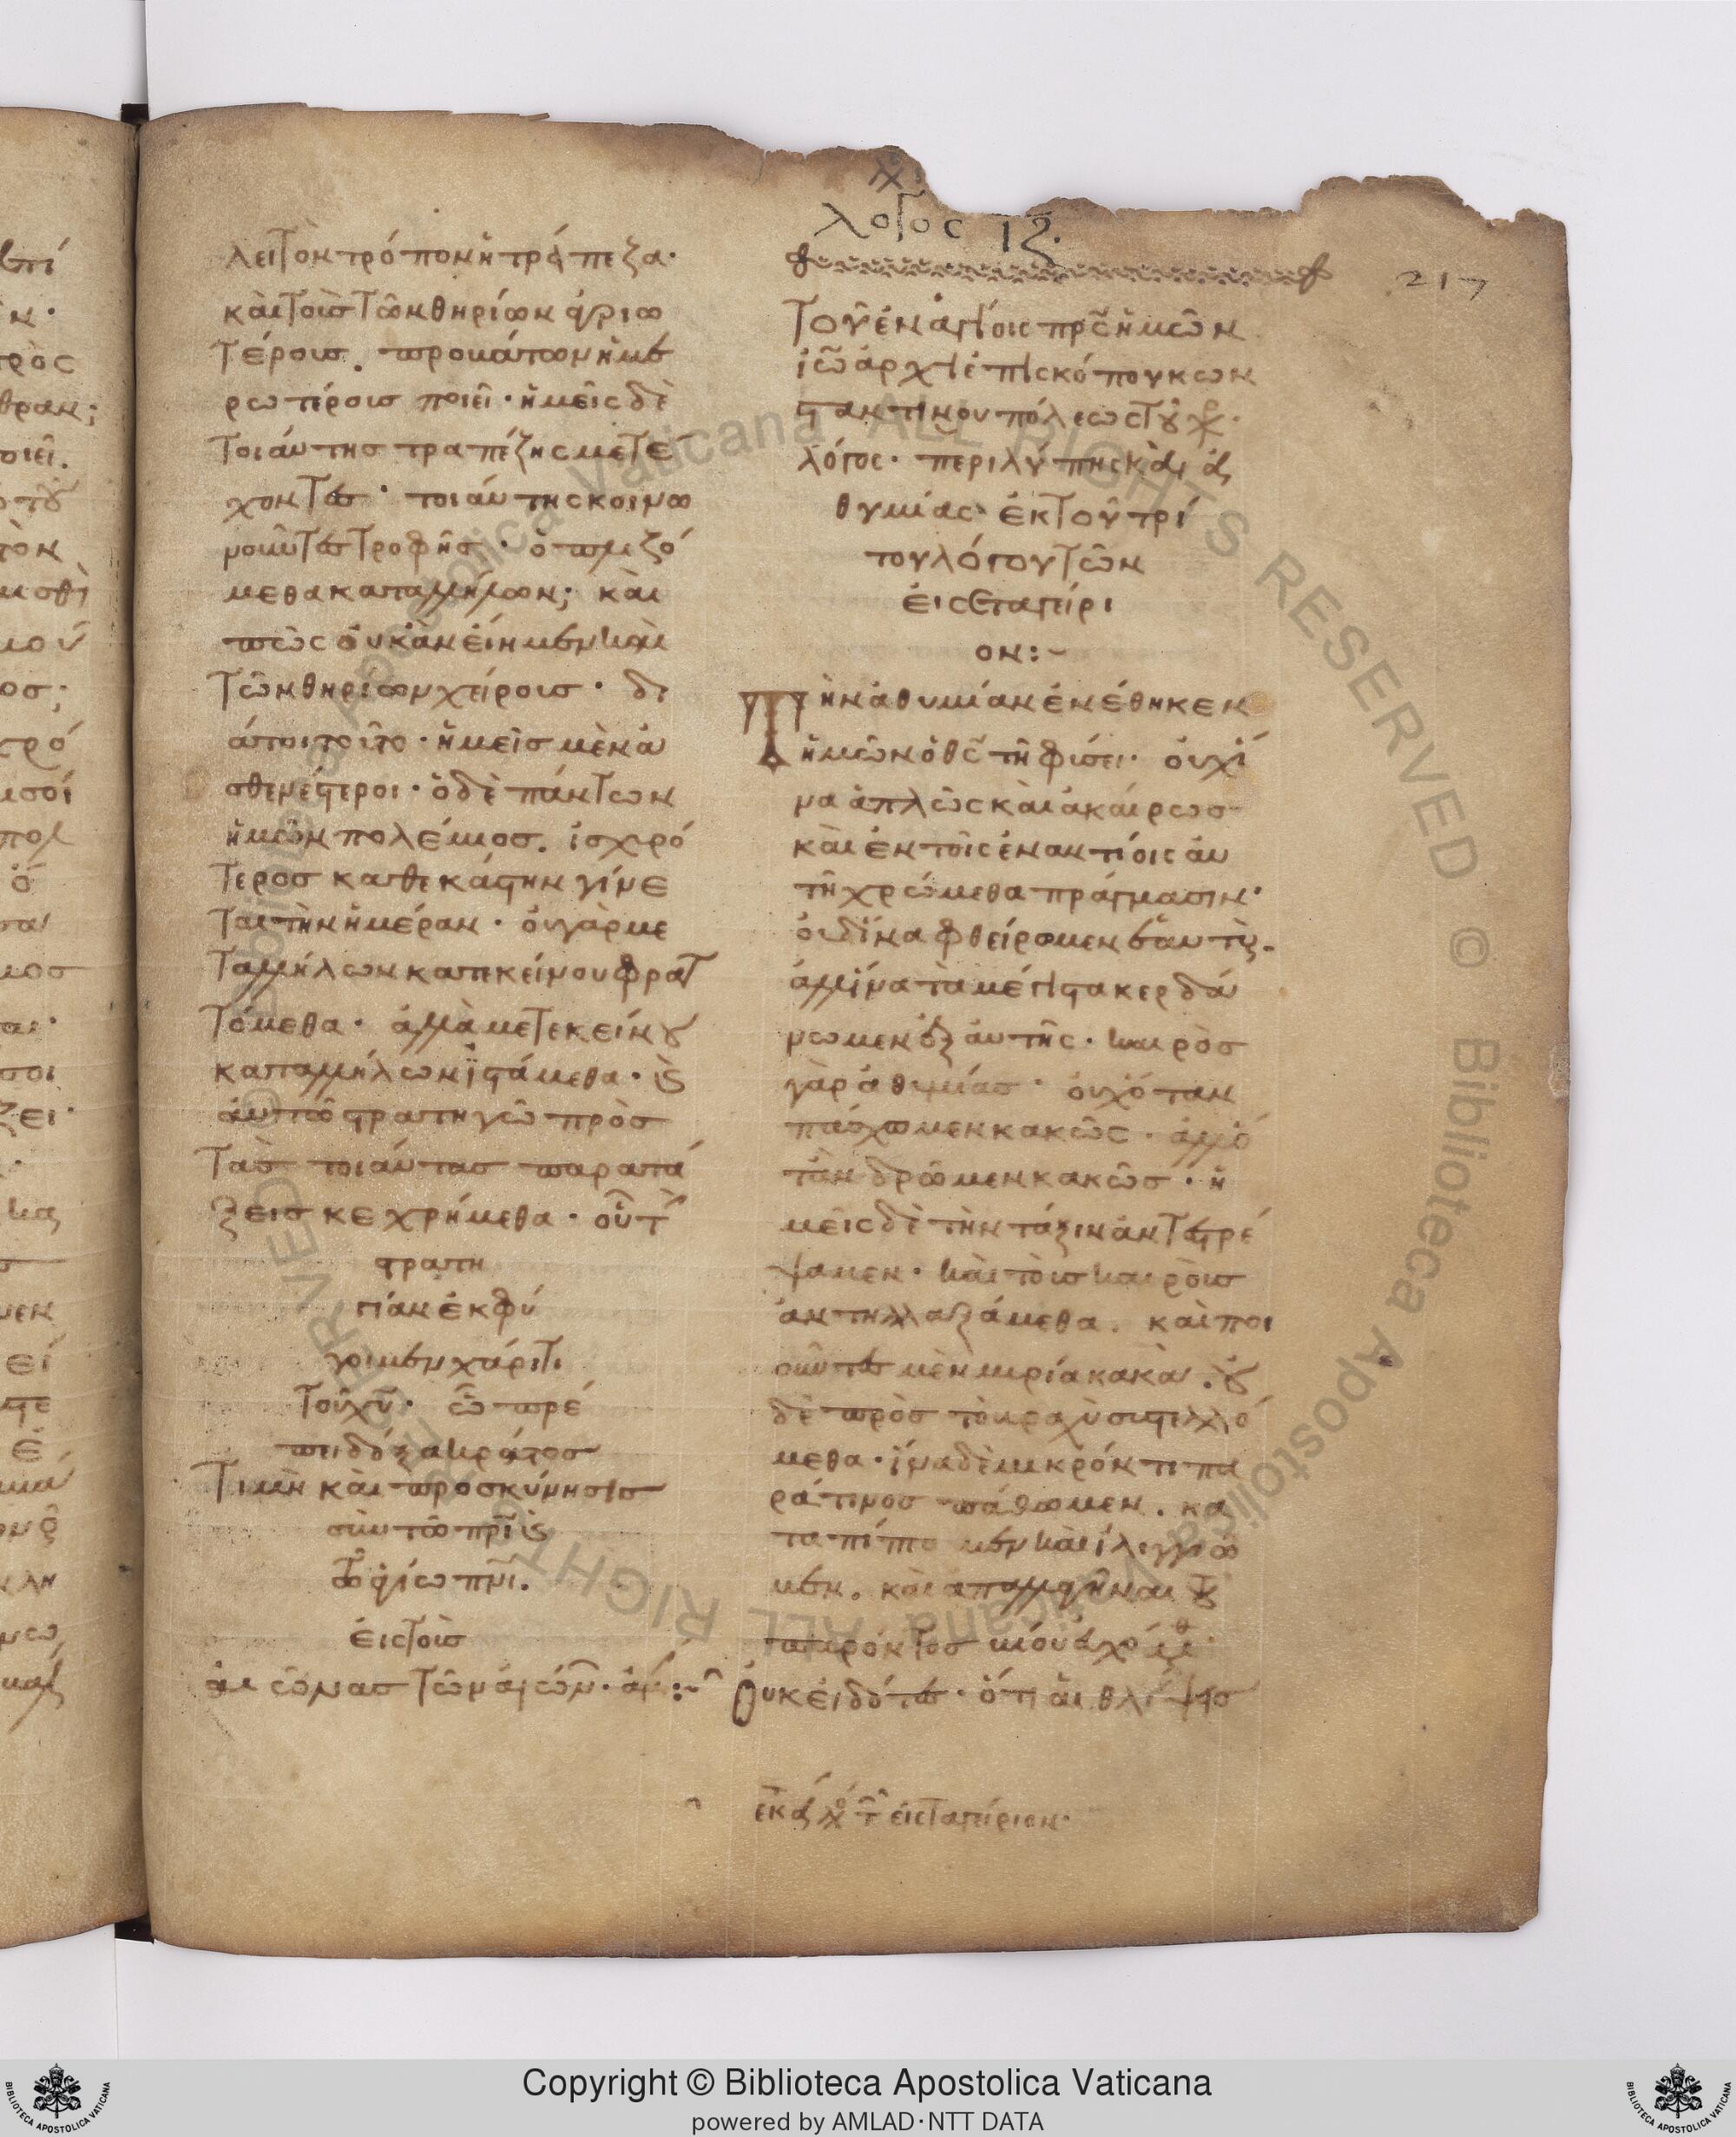 λόγος ιζ.
217
λει τὸν τρόπον ἡ τράπεζα·
καὶ τοὺς τῶν θηρίων ἀγριω
τέρους. προβάτων ἡμε
ρωτέρους ποιεῖ· ἡμεῖς δὲ
τοιάυτης τραπέζης μετέ
χοντες· τοιάυτης κοινω
νοῦντες τροφῆς· ὁπλιζό
μεθα κατ' ἀλλήλων; καὶ
πῶς ὀυκ ἀν ἐίημεν καὶ
τῶν θηρίων χείρους·
ἡμεῖς μὲν ἀ
σθενέστεροι· ὁ δὲ πάντων
ἡμῶν πολέμιος. ἰσχυρό
τερος καθ' ἑκάστην γίνε
ται τὴν ἡμέραν· ὀυ γὰρ με
τ' ἀλλήλων κατ' ἐκείνου φρατ
τόμεθα· ἀλλὰ μετ' ἐκείνου
κατ' ἀλλήλων ἱστάμεθα· καὶ
ἀυτῶ στρατηγῶ πρὸς
τὰς τοιάυτας παρατά
ξεις κεχρήμεθα·
στρατη
γίαν ἐκφύ
γοιμεν χάριτι
τοῦ χυ· ὧ πρέ
πει δόξα κράτος
τιμὴ καὶ προσκύνησις
σὺν τῶ πρὶ καὶ
τῶ ἁγίω πνι.
ἐις τοὺς
ἀιῶνας τῶν ἀιώνων· ἀμήν:~
Τοῦ ἐν ἁγίοις πρς ἡμῶν
ἰω ἀρχιἐπισκόπου κων
σταντινουπόλεως τοῦ χρ·
λόγος· περὶ λύπης καὶ ἀ
θυμίας· ἐκ τοῦ τρί
του λόγου τῶν
ἐις σταγείρι
ον:~
Τὴν ἀθυμίαν ἐνέθηκεν
ἡμῶν ὁ θς τῆ φύσει· ὀυχ ἵ
να ἁπλῶς καὶ ἀκαίρως
καὶ ἐν τοῖς ἐναντίοις ἀυ
τῆ χρώμεθα πράγμασιν·
ὀυδ' ἵνα φθείρωμεν ἑαυτὺς.
ἀλλ' ἵνα τὰ μέγιστα κερδά
νωμεν ἐξ ἀυτῆς· καιρὸς
γὰρ ἀθυμίας· ὀυχ ὅταν
πάσχωμεν κακῶς· ἀλλ' ὅ
ταν δρῶμεν κακῶς· ἡ
μεῖς δὲ τὴν τάξιν ἀντεστρέ
ψαμεν· καὶ τοὺς καιροὺς
ἀντηλλαξάμεθα. καὶ ποι
οῦντες μὲν μυρία κακὰ. οὐ
δὲ πρὸς τὸ βραχὺ συστελλό
μεθα· ἵνα δὲ μικρόν τι πα
ρά τινος πάθωμεν. κα
ταπίπτομεν καὶ ἰλιγγιῶ
μεν. καὶ ἀπαλλαγῆναι τοῦ
παρόντος
Ὀυκ ἐιδότες· ὅτι ἁι θλίψεις